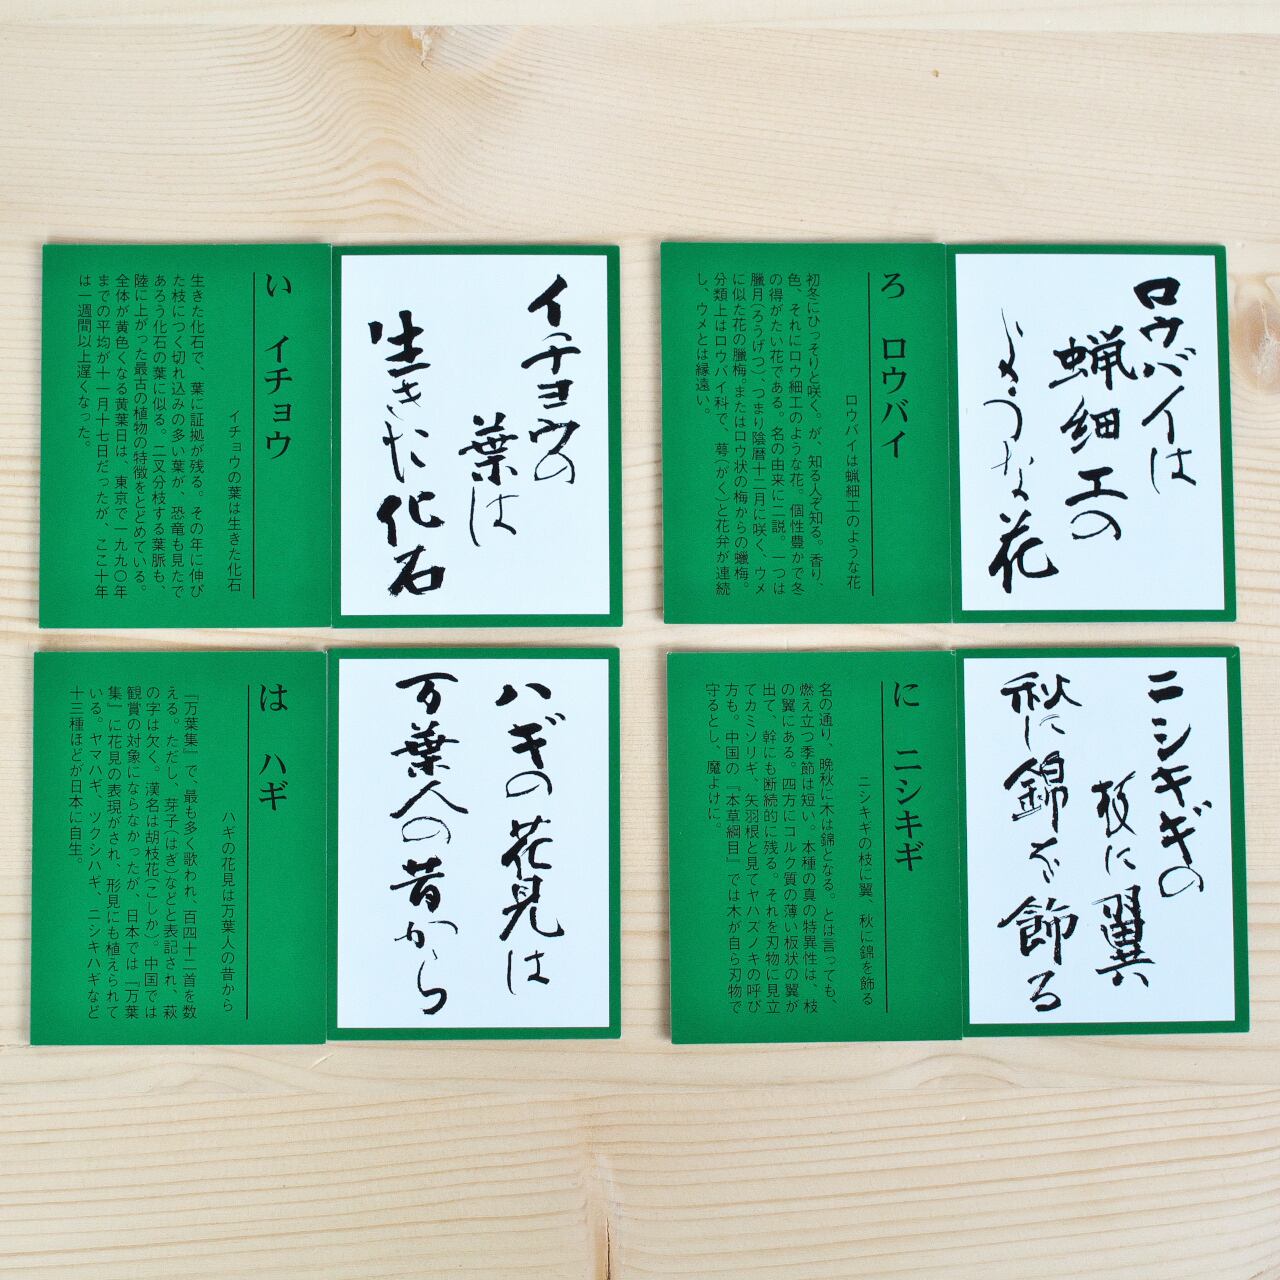 い イチョウ
イチョウの葉は生きた化石
生きた化石で、葉に証拠が残る。その年に伸び
た枝につく切れ込みの多い葉が、恐竜も見たで
あろう化石の葉に似る。二叉分枝する葉脈も、
陸に上がった最古の植物の特徴をとどめている。
全体が黄色くなる黄葉日は、東京で一九九〇年
までの平均が十一月十七日だったが、ここ十年
は一週間以上遅くなった。
イチョウの
葉は
生きた化石
ろ ロウバイ
ロウバイは蝋細工のような花
初冬にひっそりと咲く。が、知る人ぞ知る。香り、
色、それにロウ細工のような花。個性豊かで冬
の得がたい花である。名の由来に二説。一つは
臘月（ろうげつ）、つまり陰暦十二月に咲く、ウメ
に似た花の臘梅。またはロウ状の梅からの蠟梅。
分類上はロウバイ科で、萼（がく）と花弁が連続
し、ウメとは縁遠い。
ロウバイは
蝋細工の
ような花
は ハギ
ハギの花見は万葉人の昔から
『万葉集』で、最も多く歌われ、百四十二首を数
える。ただし、芽子（はぎ）などと表記され、萩
の字は欠く。漢名は胡枝花（こしか）。中国では
観賞の対象にならなかったが、日本では『万葉
集』に花見の表現がされ、形見にも植えられて
いる。ヤマハギ、ツクシハギ、ニシキハギなど
十三種ほどが日本に自生。
ハギの花見は
万葉人の昔から
に ニシキギ
ニシキギの枝に翼、秋に錦を飾る
名の通り、晩秋に木は錦となる。とは言っても、
燃え立つ季節は短い。本種の真の特異性は、枝
の翼にある。四方にコルク質の薄い板状の翼が
出て、幹にも断続的に残る。それを刃物に見立
てカミソリギ、矢羽根と見てヤハズノキの呼び
方も。中国の『本草綱目』では木が自ら刃物で
守るとし、魔よけに。
ニシキギの
枝に翼
秋に錦を飾る